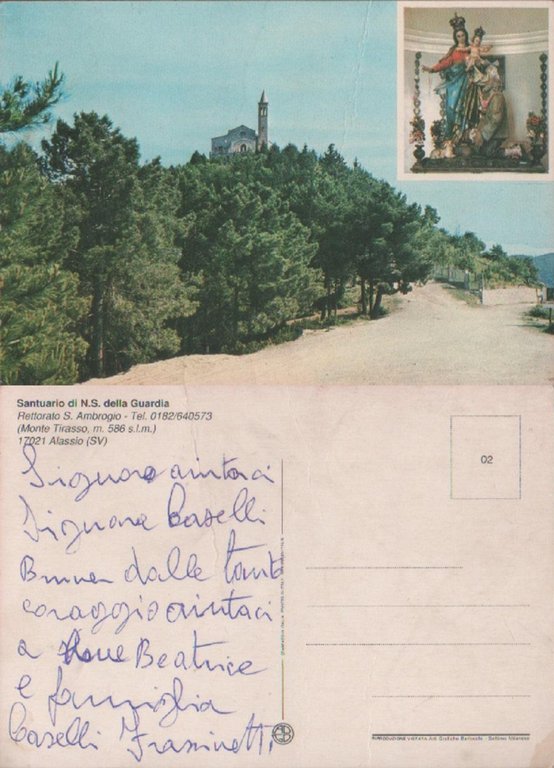 Santuario di N.S. della Guardia
Rettorato S. Ambrogio - Tel. 0182/640573
(Monte Tirasso, m. 586 s.l.m.)
17021 Alassio (SV)
02
Signore aiutaci
Signore Caselli
dalle tanto
coraggio aiutaci
a Beatrice
e famiglia
Caselli Frassinetti
RIPRODUZIONE VIETATA